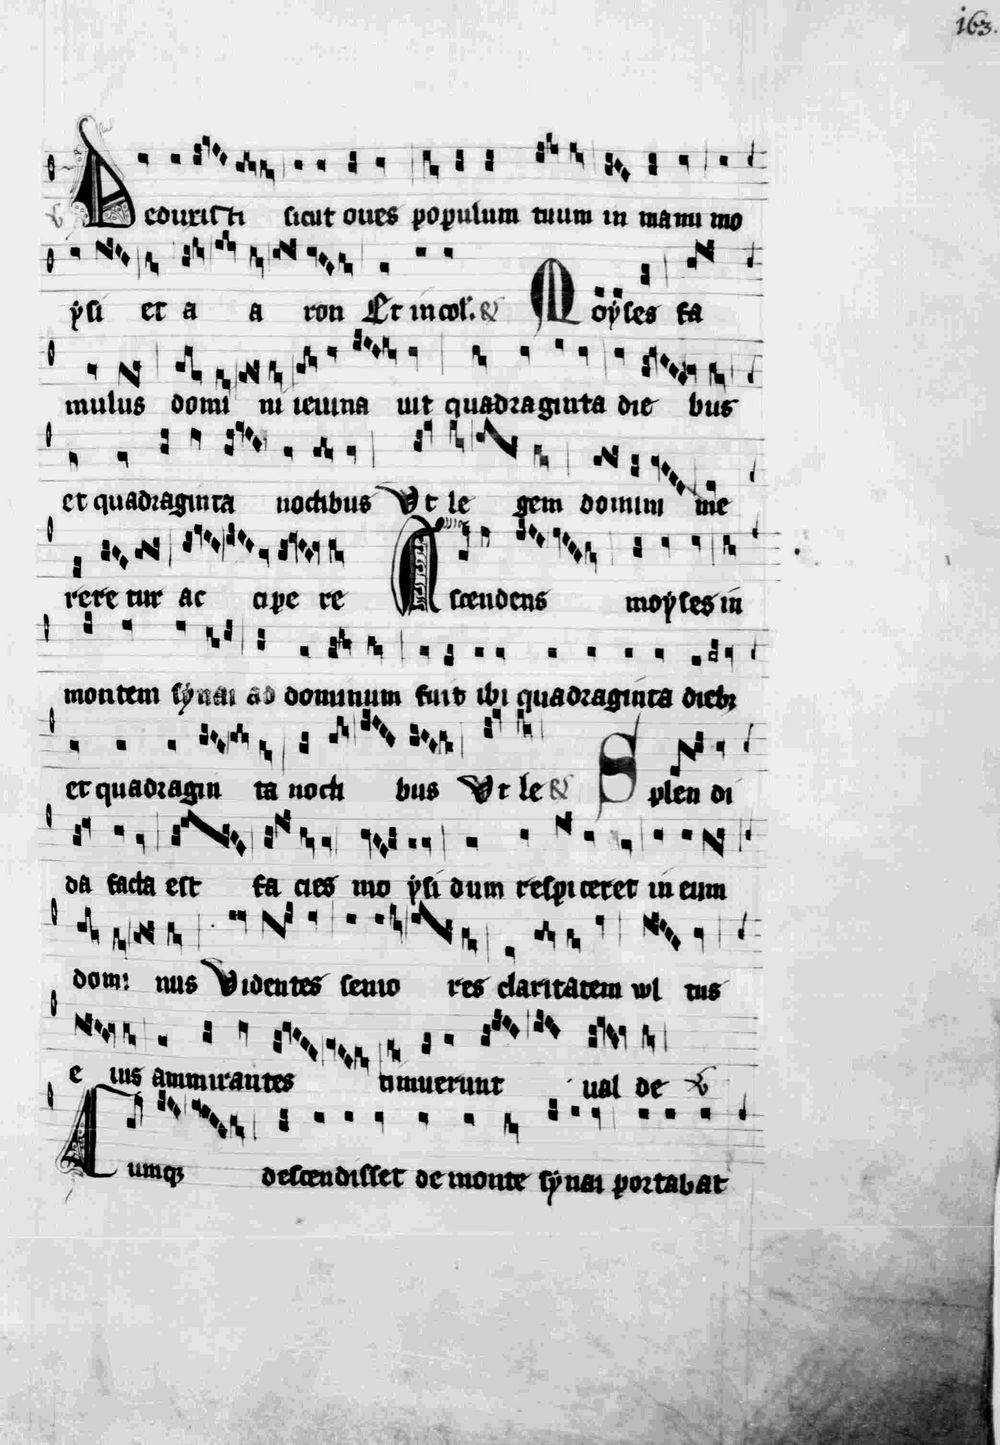 163.
Deduxisti sicut oves populum tuum in manu mo
ysi et a a ron Et in col'. & Moyses fa
mulus domi ni ieiuna uit quadraginta die bus
et quadraginta noctibus Vt le gem domini me
rere tur ac cipe re Ascendens moyses in
montem synai ad dominum fuit ibi quadraginta dieb;
et quadragin ta nocti bus Vt le & Splen di
da facta est fa cies mo ysi dum respiceret in eum
domi nus Videntes senio res claritatem wl tus
e ius ammirantes timuerunt ual de V
Cumq; descendisset de monte synai portabat